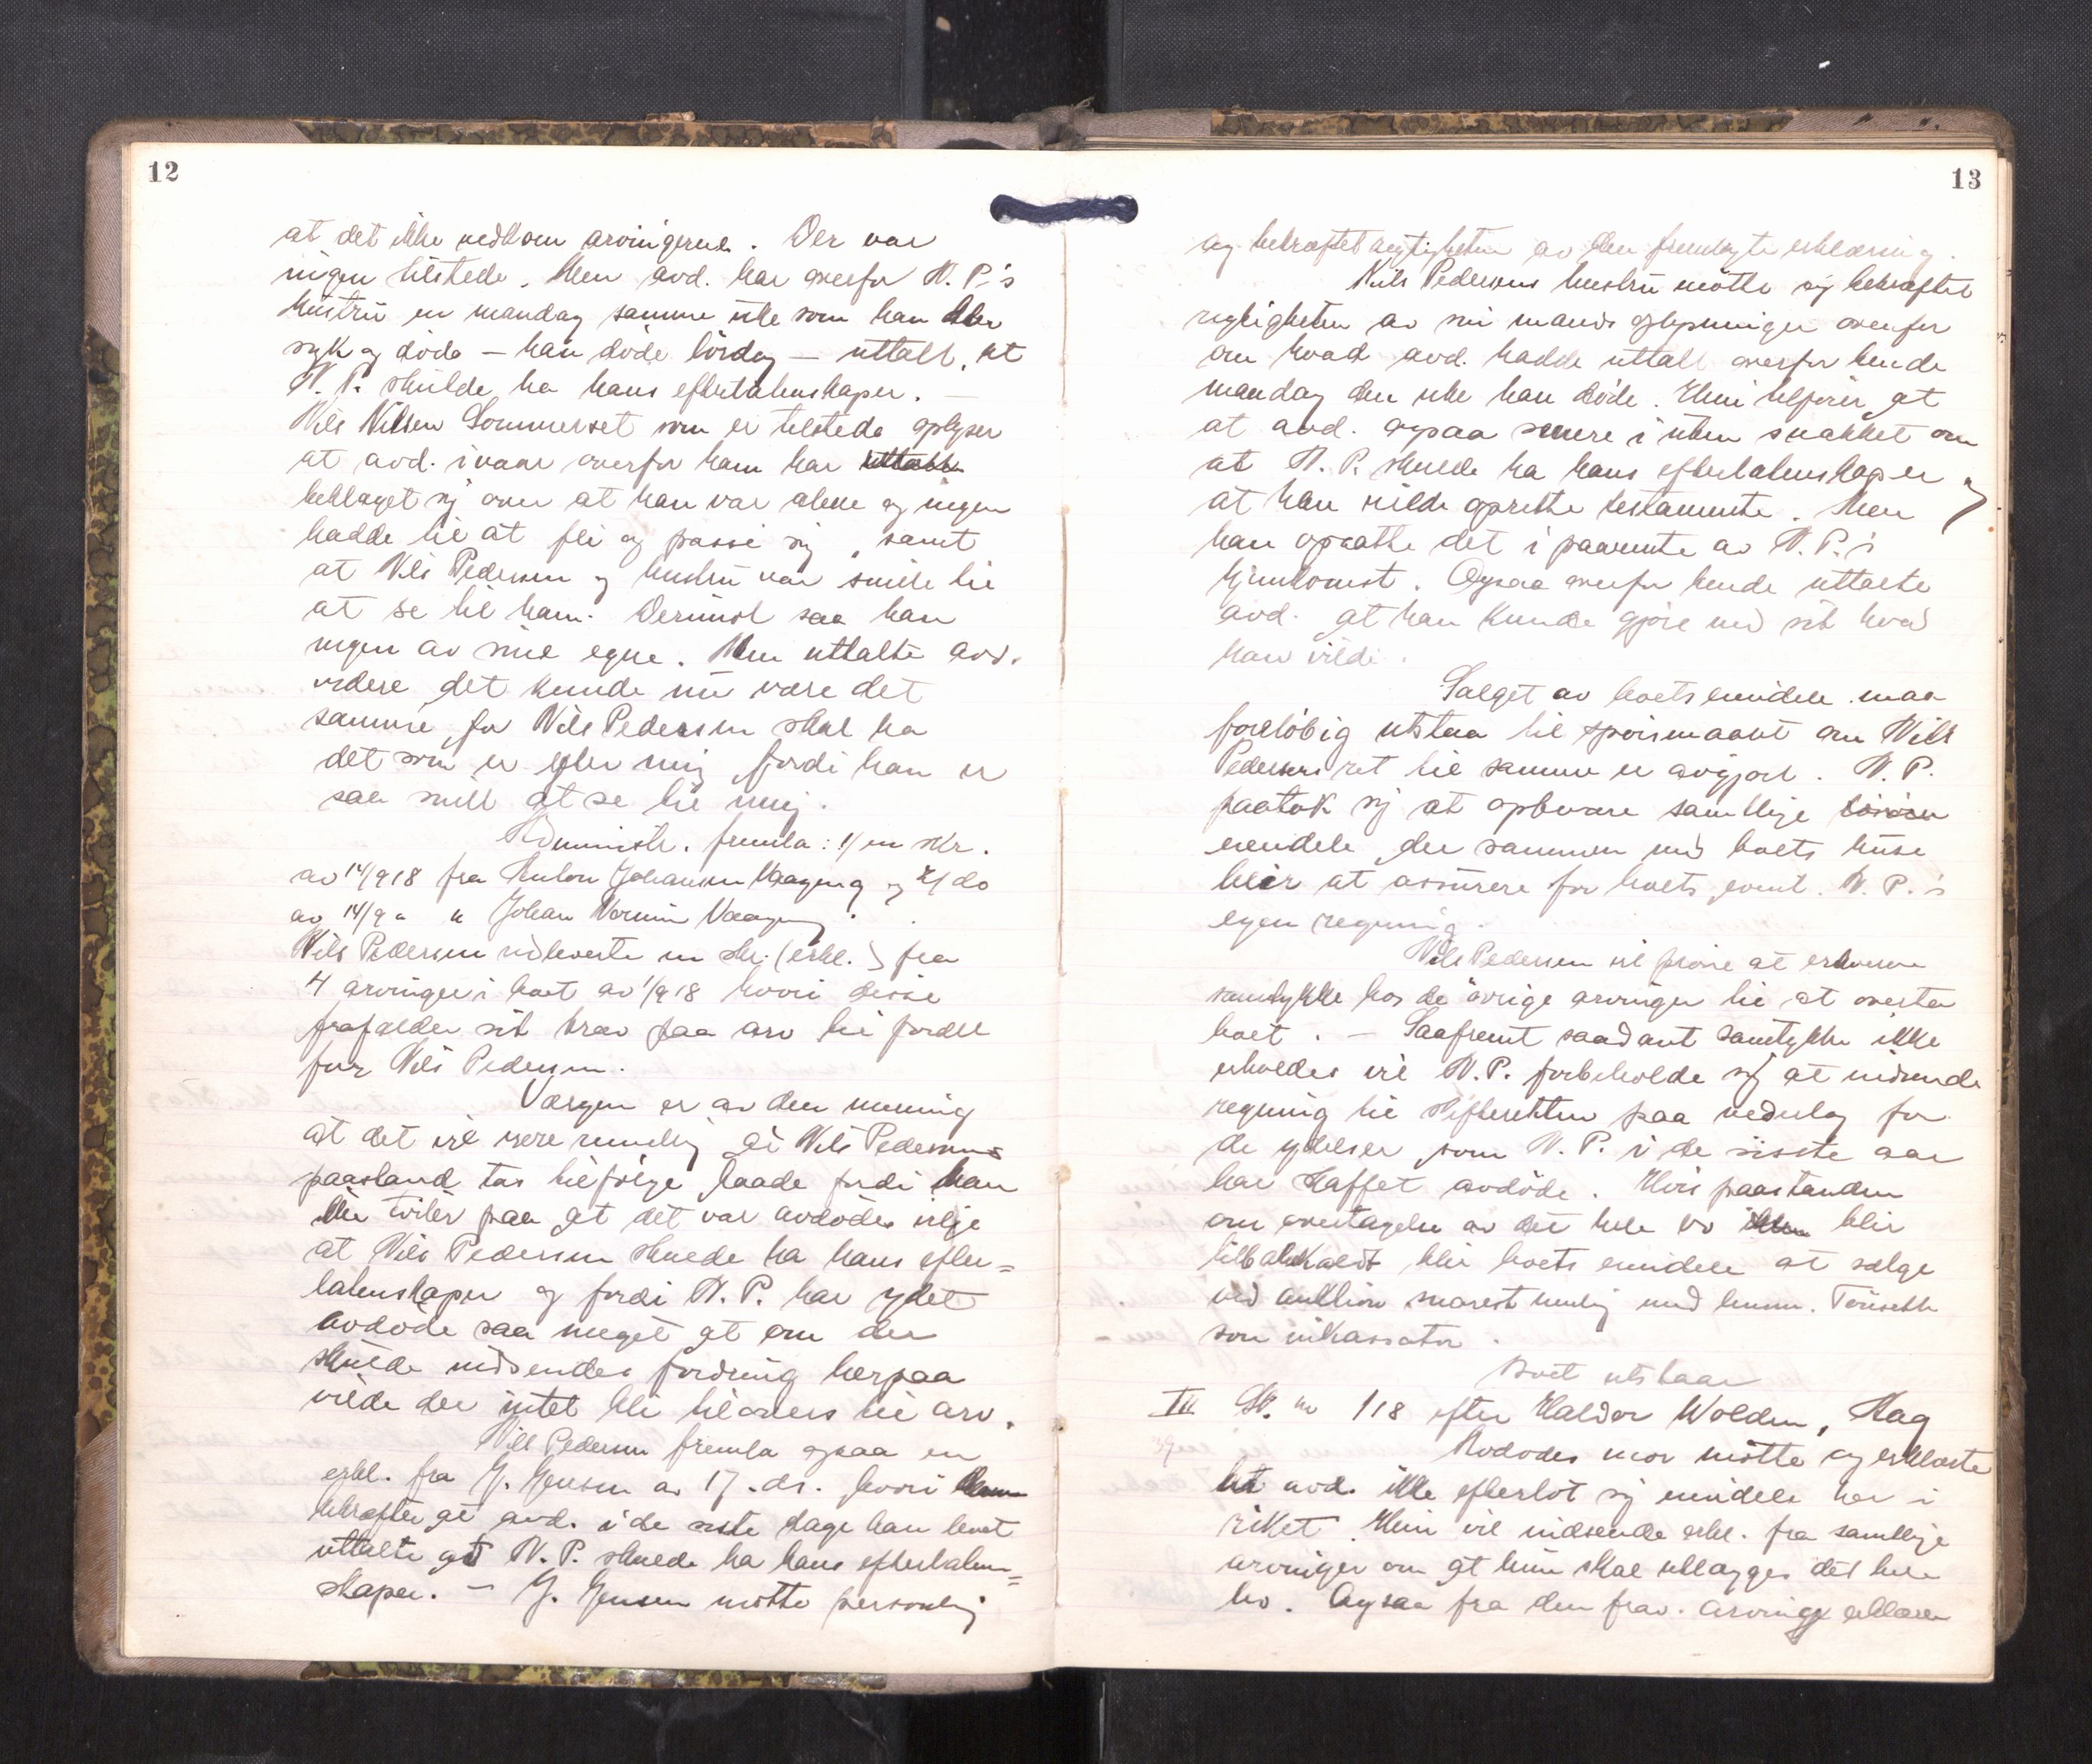 12
at det ikke vedkom arvingerne. Der var
ingen tilstede. Men avd. har overfor N. P.'s
hustru en mandag samme uke som han blev
syk og døde — han døde lørdag — uttalt, at
N. P. skulde ha hans efterlatenskaper. —
Nils Nilsen Sommerset som er tilstede oplyser
at avd. ivaar overfor ham har uttalt
beklaget sig over at han var alene og ingen
hadde til at fli og passe sig, samt
at Nils Pedersen og hustru var snille til
at se til ham. Derimot saa han
ingen av sine egne. Men uttalte avd.
videre, det kunde nu være det
samme, for Nils Pedersen skal ha
det som er efter mig, fordi han er
saa snill at se til mig.
Administr. fremla: 1/ en skr.
av 14/9 18 fra Johansen Vaageng og 2/ do
av 14/9 " " Johan Vaageng.
Nils Pedersen indleverte en skr. (erkl.) fra
4 arvinger i boet av 1/9 18 hvori disse
frafalder sit krav paa arv til fordel
for Nils Pedersen.
Værgen er av den mening
at det vil være rimelig at Nils Pedersens
paastand tas tilfølge, baade fordi han
ikke tviler paa at det var avdødes vilje
at Nils Pedersen skulde ha hans efter=
latenskaper og fordi N. P. har ydet
avdøde saa meget at om der
skulde indsendes fordring herpaa
vilde der intet bli tilovers til arv.
Nils Pedersen fremla ogsaa en
erkl. fra J. Jensen av 17. ds. hvori denne
bekræfter at avd. i de siste dage han levet
uttalte at N. P. skulde ha hans efterlaten=
skaper. — J. Jensen møtte personlig
13
og bekræftet rigtigheten av den fremlagte erklæring.
Nils Pedersens hustru møtte og bekræftet
rigtigheten av sin mands oplysninger ovenfor
om hvad avd. hadde uttalt overfor hende
mandag den uke han døde. Hun tilføier at
at avd. ogsaa senere i uken snakket om
at N. P. skulde ha hans efterlatenskaper og
at han vilde oprette testamente. Men
han opsatte det i paavente av N. P.'s
hjemkomst. Ogsaa overfor hende uttalte
avd. at han kunde gjøre med sit hvad
han vilde.
Salget av boets eiendele maa
foreløbig utstaa til spørsmaalet om Nils
Pedersens ret til samme er avgjort. N. P.
paatok sig at opbevare samtlige løsøre
eiendele, der sammen med boets huse
blir at assurere for boets, event. N. P.'s
egen regning.
Nils Pedersen vil prøve at erhverve
samtykke hos de øvrige arvinger til at overta
boet. — Saafremt saadant samtykke ikke
erholdes vil N. P. forbeholde sig at indsende
regning til skifteretten paa vederlag for
de ydelser, som N. P. i de siste aar
har skaffet avdøde. Hvis paastanden
om overtagelse av det hele bo blir
tilbakekaldt blir boets eiendele at sælge
ved auktion snarest mulig med lensm. Tønseth
som inkassator.
Boet utstaar
III Sk. nr 1/18 efter Haldor Wolden, Hag
Avdødes mor møtte og erklærte
at avd. ikke efterlot sig eiendele her i
riket. Hun vil indsende erkl. fra samtlige
arvinger om at hun skal utlægges det hele
bo. Ogsaa fra den frav. arving erklærer